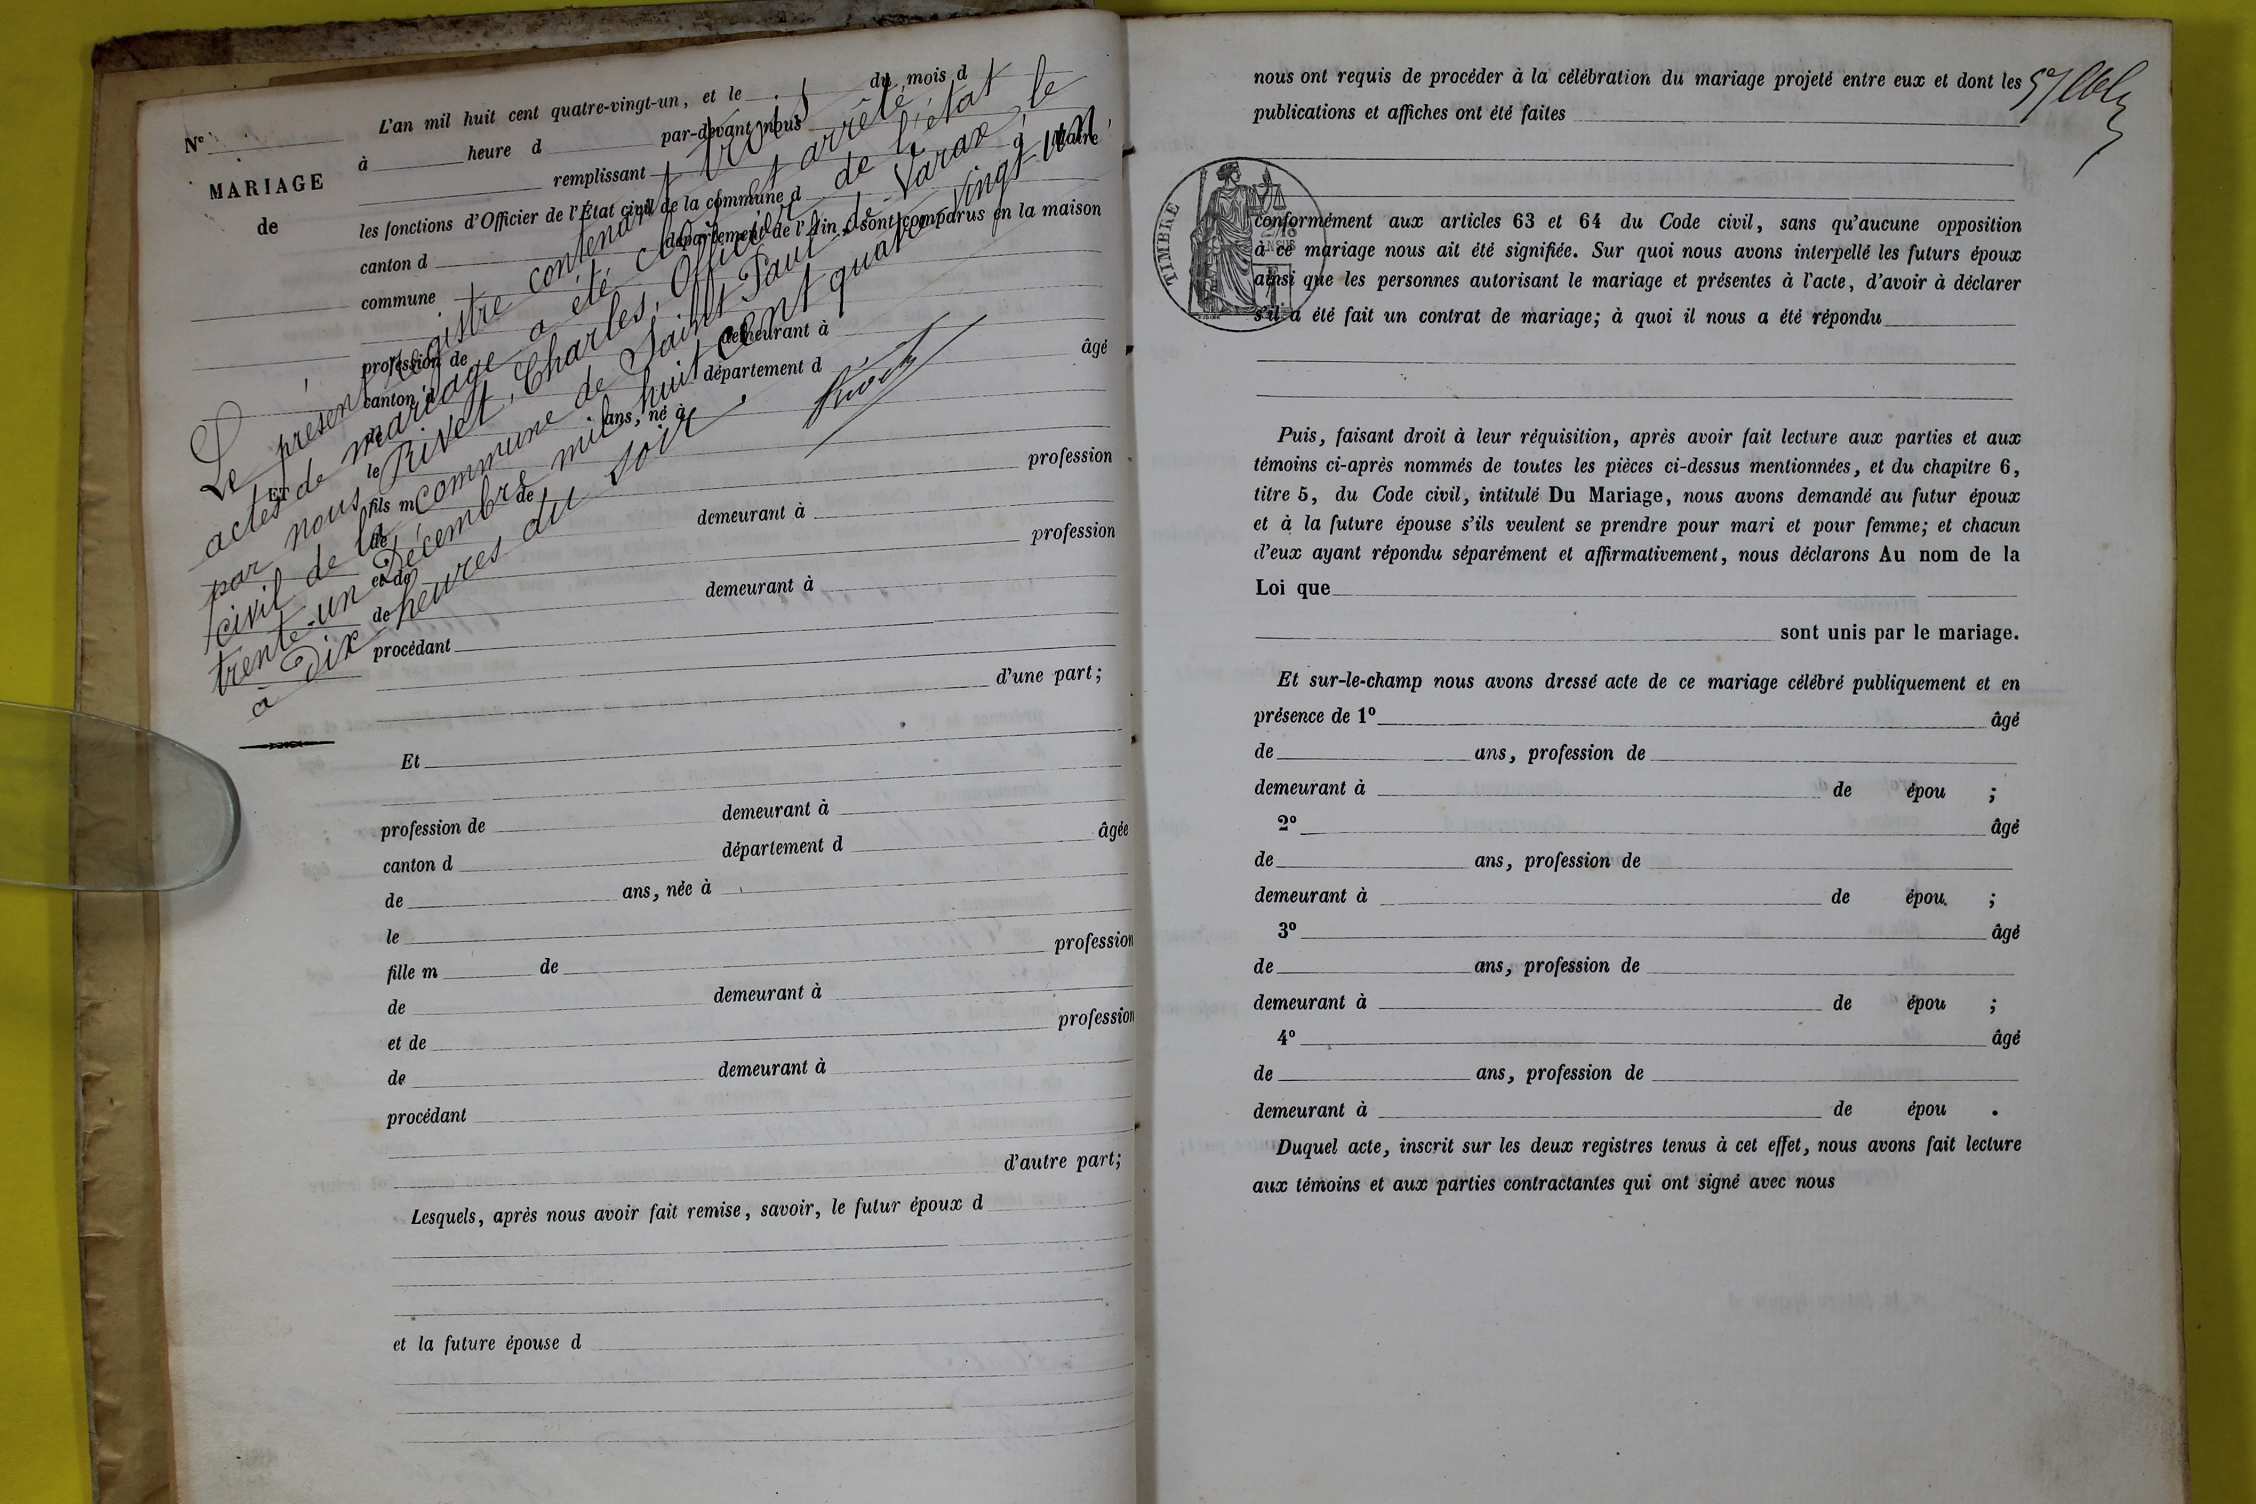 L'an mil huit cent quatre-vingt-un, et le du mois d
N°
à heure d par-devant nous
MARIAGE
remplissant
de
les fonctions d'Officier de l'État civil de la commune d
canton d département de l'Ain, sont comparus en la maison
commune
profession de demeurant à
canton d département d âgé
de ans, né à
le
ET
fils m de profession
de demeurant à
et de profession
de demeurant à
procédant
d'une part;
Le présent registre contenant trois
actes de mariage a été clos et arrêté,
par nous Rivet, Charles, Officier de l'état
civil de la commune de Saint Paul de Varax, le
trente-un Décembre mil huit cent quatre-vingt-un
à Dix heures du soir.
Rivet
Et
profession de demeurant à
canton d département d âgée
de ans, née à
le
fille m de profession
de demeurant à
et de profession
de demeurant à
procédant
d'autre part;
Lesquels, après nous avoir fait remise, savoir, le futur époux d
et la future épouse d
nous ont requis de procéder à la célébration du mariage projeté entre eux et dont les
publications et affiches ont été faites
TIMBRE
conformément aux articles 63 et 64 du Code civil, sans qu'aucune opposition
à ce mariage nous ait été signifiée. Sur quoi nous avons interpellé les futurs époux
ainsi que les personnes autorisant le mariage et présentes à l'acte, d'avoir à déclarer
s'il a été fait un contrat de mariage; à quoi il nous a été répondu
Puis, faisant droit à leur réquisition, après avoir fait lecture aux parties et aux
témoins ci-après nommés de toutes les pièces ci-dessus mentionnées, et du chapitre 6,
titre 5, du Code civil, intitulé Du Mariage, nous avons demandé au futur époux
et à la future épouse s'ils veulent se prendre pour mari et pour femme; et chacun
d'eux ayant répondu séparément et affirmativement, nous déclarons Au nom de la
Loi que
sont unis par le mariage.
Et sur-le-champ nous avons dressé acte de ce mariage célébré publiquement et en
présence de 1° âgé
de ans, profession de
demeurant à de épou ;
2° âgé
de ans, profession de
demeurant à de épou ;
3° âgé
de ans, profession de
demeurant à de épou ;
4° âgé
de ans, profession de
demeurant à de épou .
Duquel acte, inscrit sur les deux registres tenus à cet effet, nous avons fait lecture
aux témoins et aux parties contractantes qui ont signé avec nous